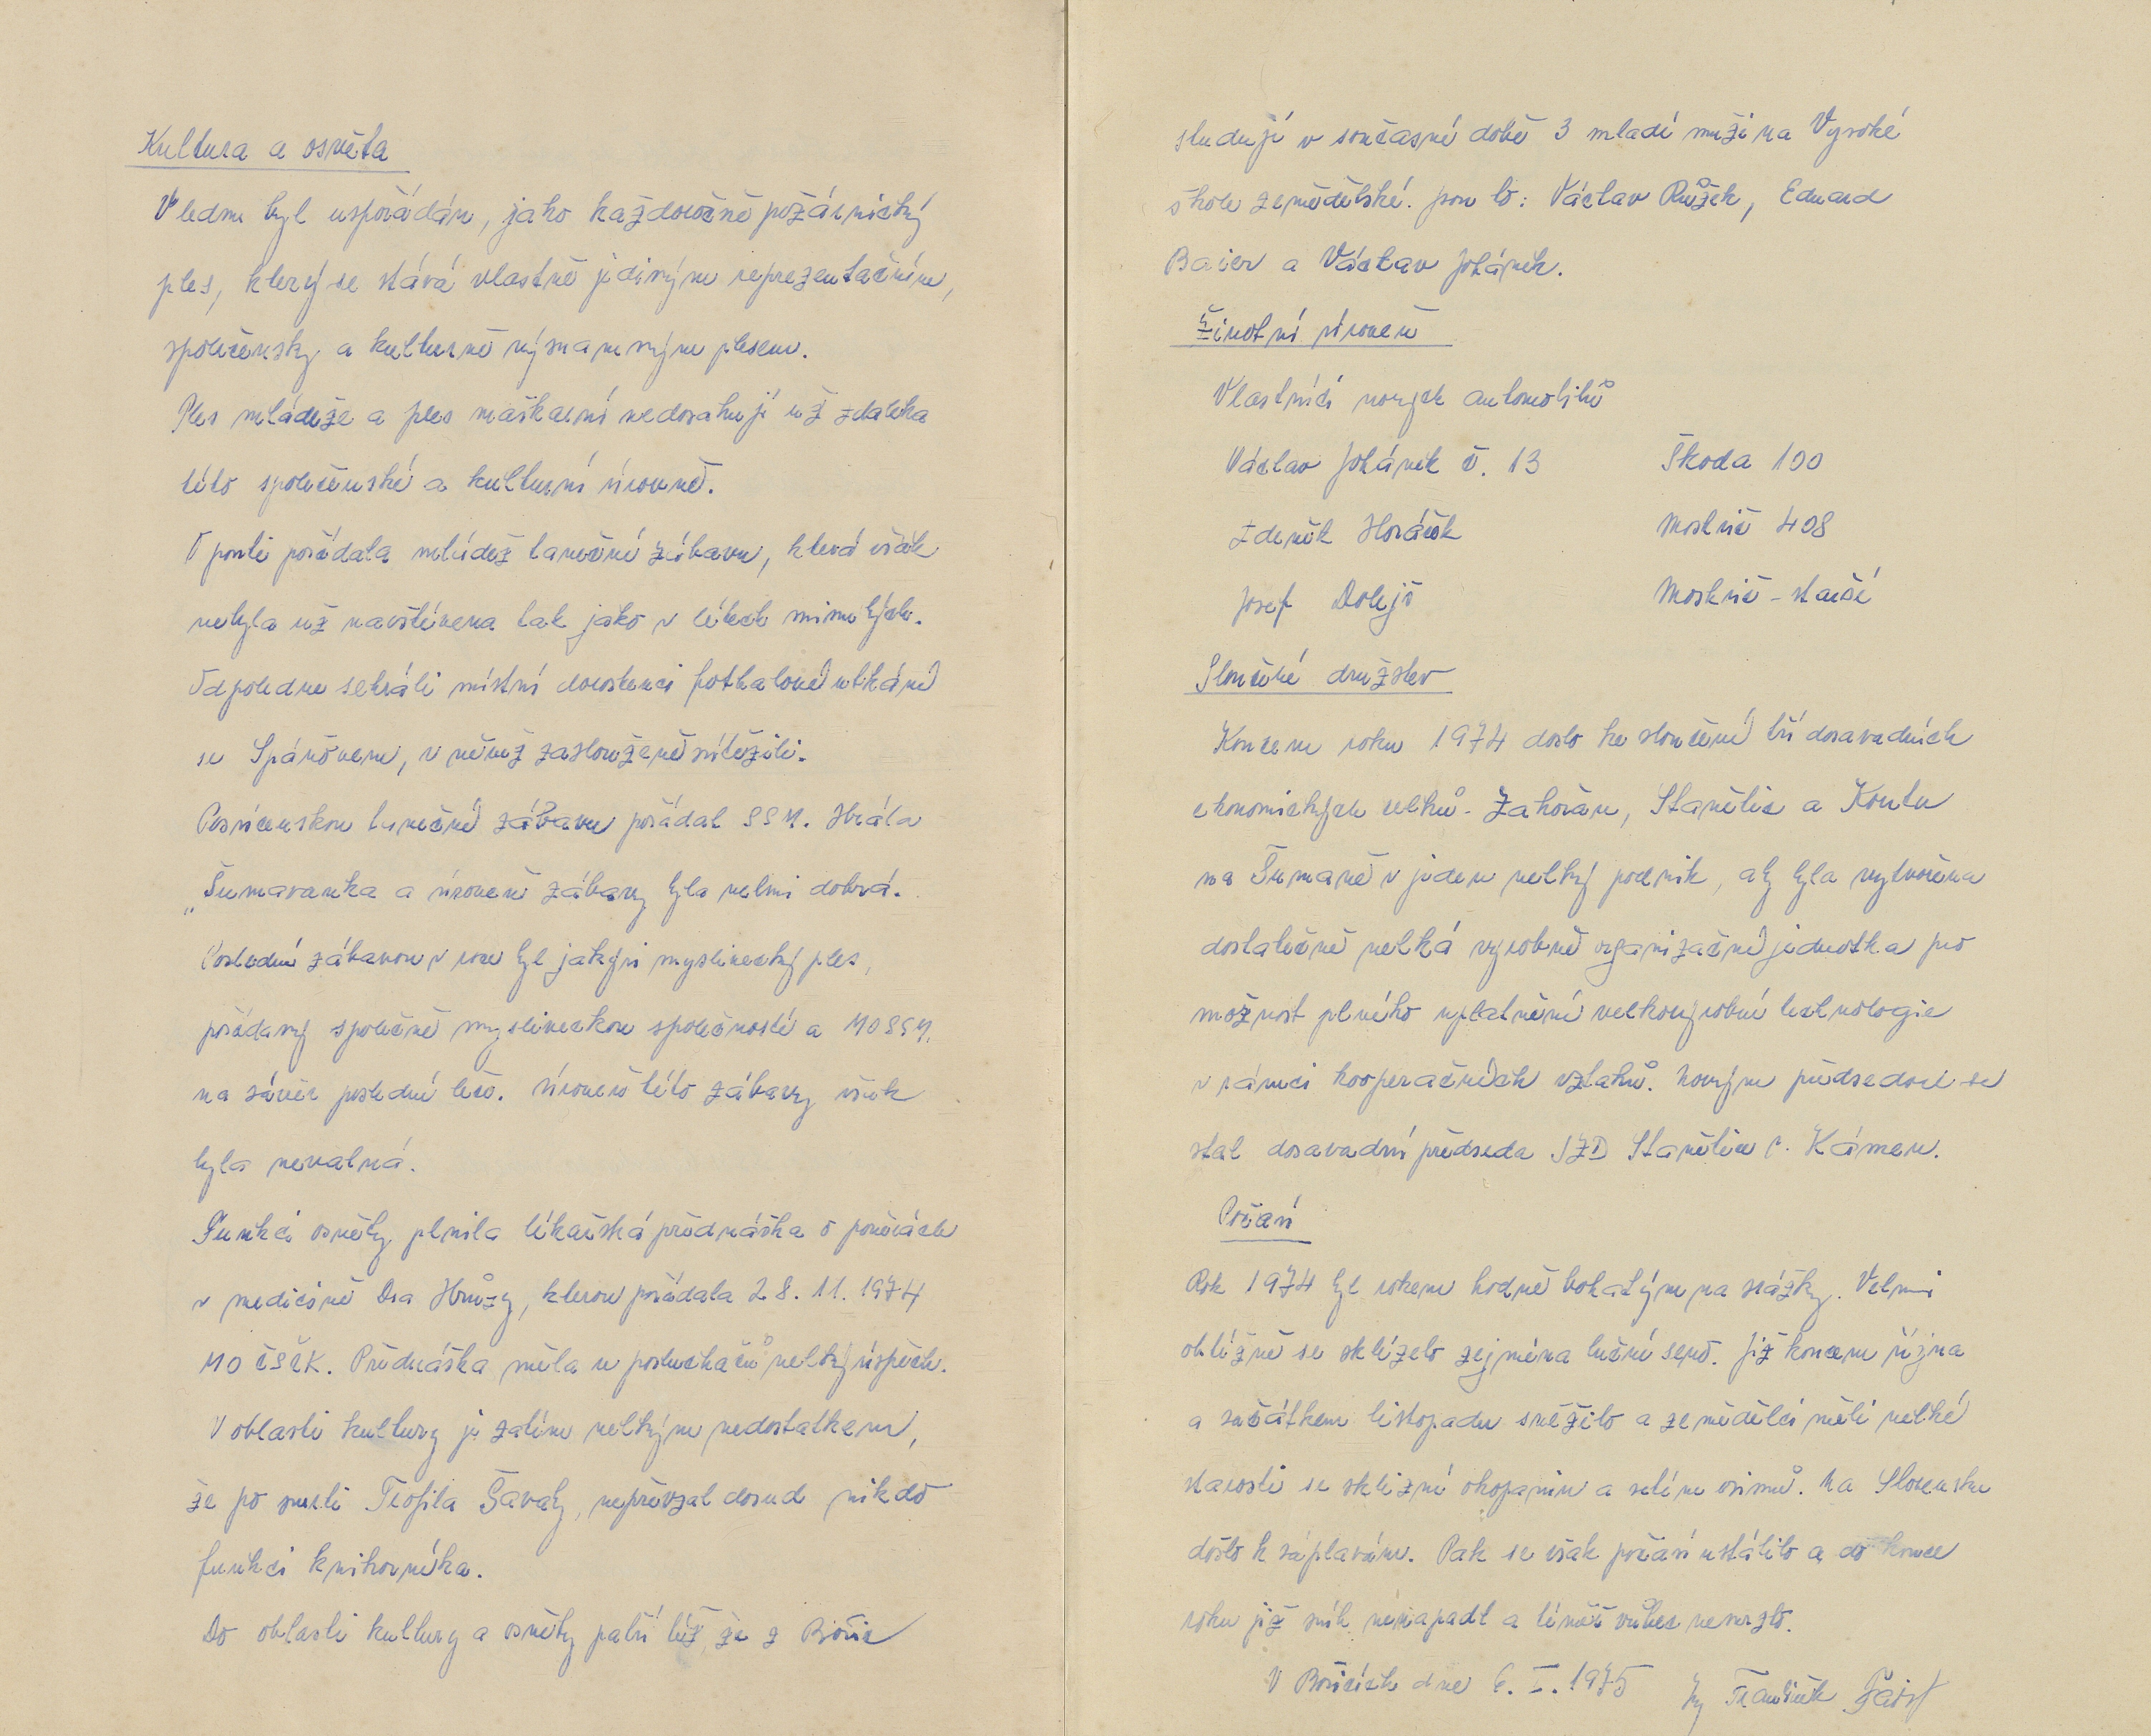 Kultura a osvěta
V lednu byl uspořádán, jako každoročně požárnický
ples, který se stává vlastně jediným reprezentačním,
společensky a kulturně významným plesem.
Ples mládeže a ples maškarní nedosahují už zdaleka
této společenské a kulturní úrovně.
O pouti pořádala mládež taneční zábavu, která však
nebyla už navštívena tak jako v létech minulých.
Odpoledne sehráli místní dorostenci fotbalové utkání
se Spáňovem, v němž zaslouženě zvítězili.
Posvícenskou taneční zábavu pořádal SSM. Hrála
„Šumavanka a úroveň zábavy byla velmi dobrá.
Poslední zábavou v roce byl jakýsi myslivecký ples,
pořádaný společně mysliveckou společností a MO SSM.
na závěr poslední leče. Úroveň této zábavy však
byla nevalná.
Funkci osvěty plnila lékařská přednáška o pověrách
v medicíně Dra Hrůzy, kterou pořádala 28. 11. 1974
MO ČSČK. Přednáška měla u posluchačů velký úspěch.
V oblasti kultury je zatím velkým nedostatkem,
že po smrti Teofila Šavaty, nepřevzal dosud nikdo
funkci knihovníka.
Do oblasti kultury a osvěty patří též, že z Bořic
studují v současné době 3 mladí muži na Vysoké
škole zemědělské. jsou to: Václav Růžek, Eduard
Baier a Václav Johánek.
Životní úroveň
Vlastníci nových automobilů
Václav Johánek č. 13 Škoda 100
Zdeněk Horáček Moskvič 408
Josef Dolejš Moskvič - starší
Sloučení družstev
Koncem roku 1974 došlo ke sloučení tří dosavadních
ekonomických celků - Zahořan, Stanětic a Koutu
na Šumavě v jeden velký podnik, aby byla vytvořena
dostatečně velká výrobně organizační jednotka pro
možnost plného uplatnění velkovýrobní technologie
v rámci kooperačních vztahů. Novým předsedou se
stal dosavadní předseda JZD Stanětice s. Kámen.
Počasí
Rok 1974 byl rokem hodně bohatým na srážky. Velmi
obtížně se sklízelo zejména luční seno. Již koncem října
a začátkem listopadu sněžilo a zemědělci měli velké
starosti se sklizní okopanin a setím ozimů. Na Slovensku
došlo k záplavám. Pak se však počasí ustálilo a do konce
roku již sníh nenapadl a téměř vůbec nemrzlo.
V Bořicích dne 6. I. 1975 Ing František Faist